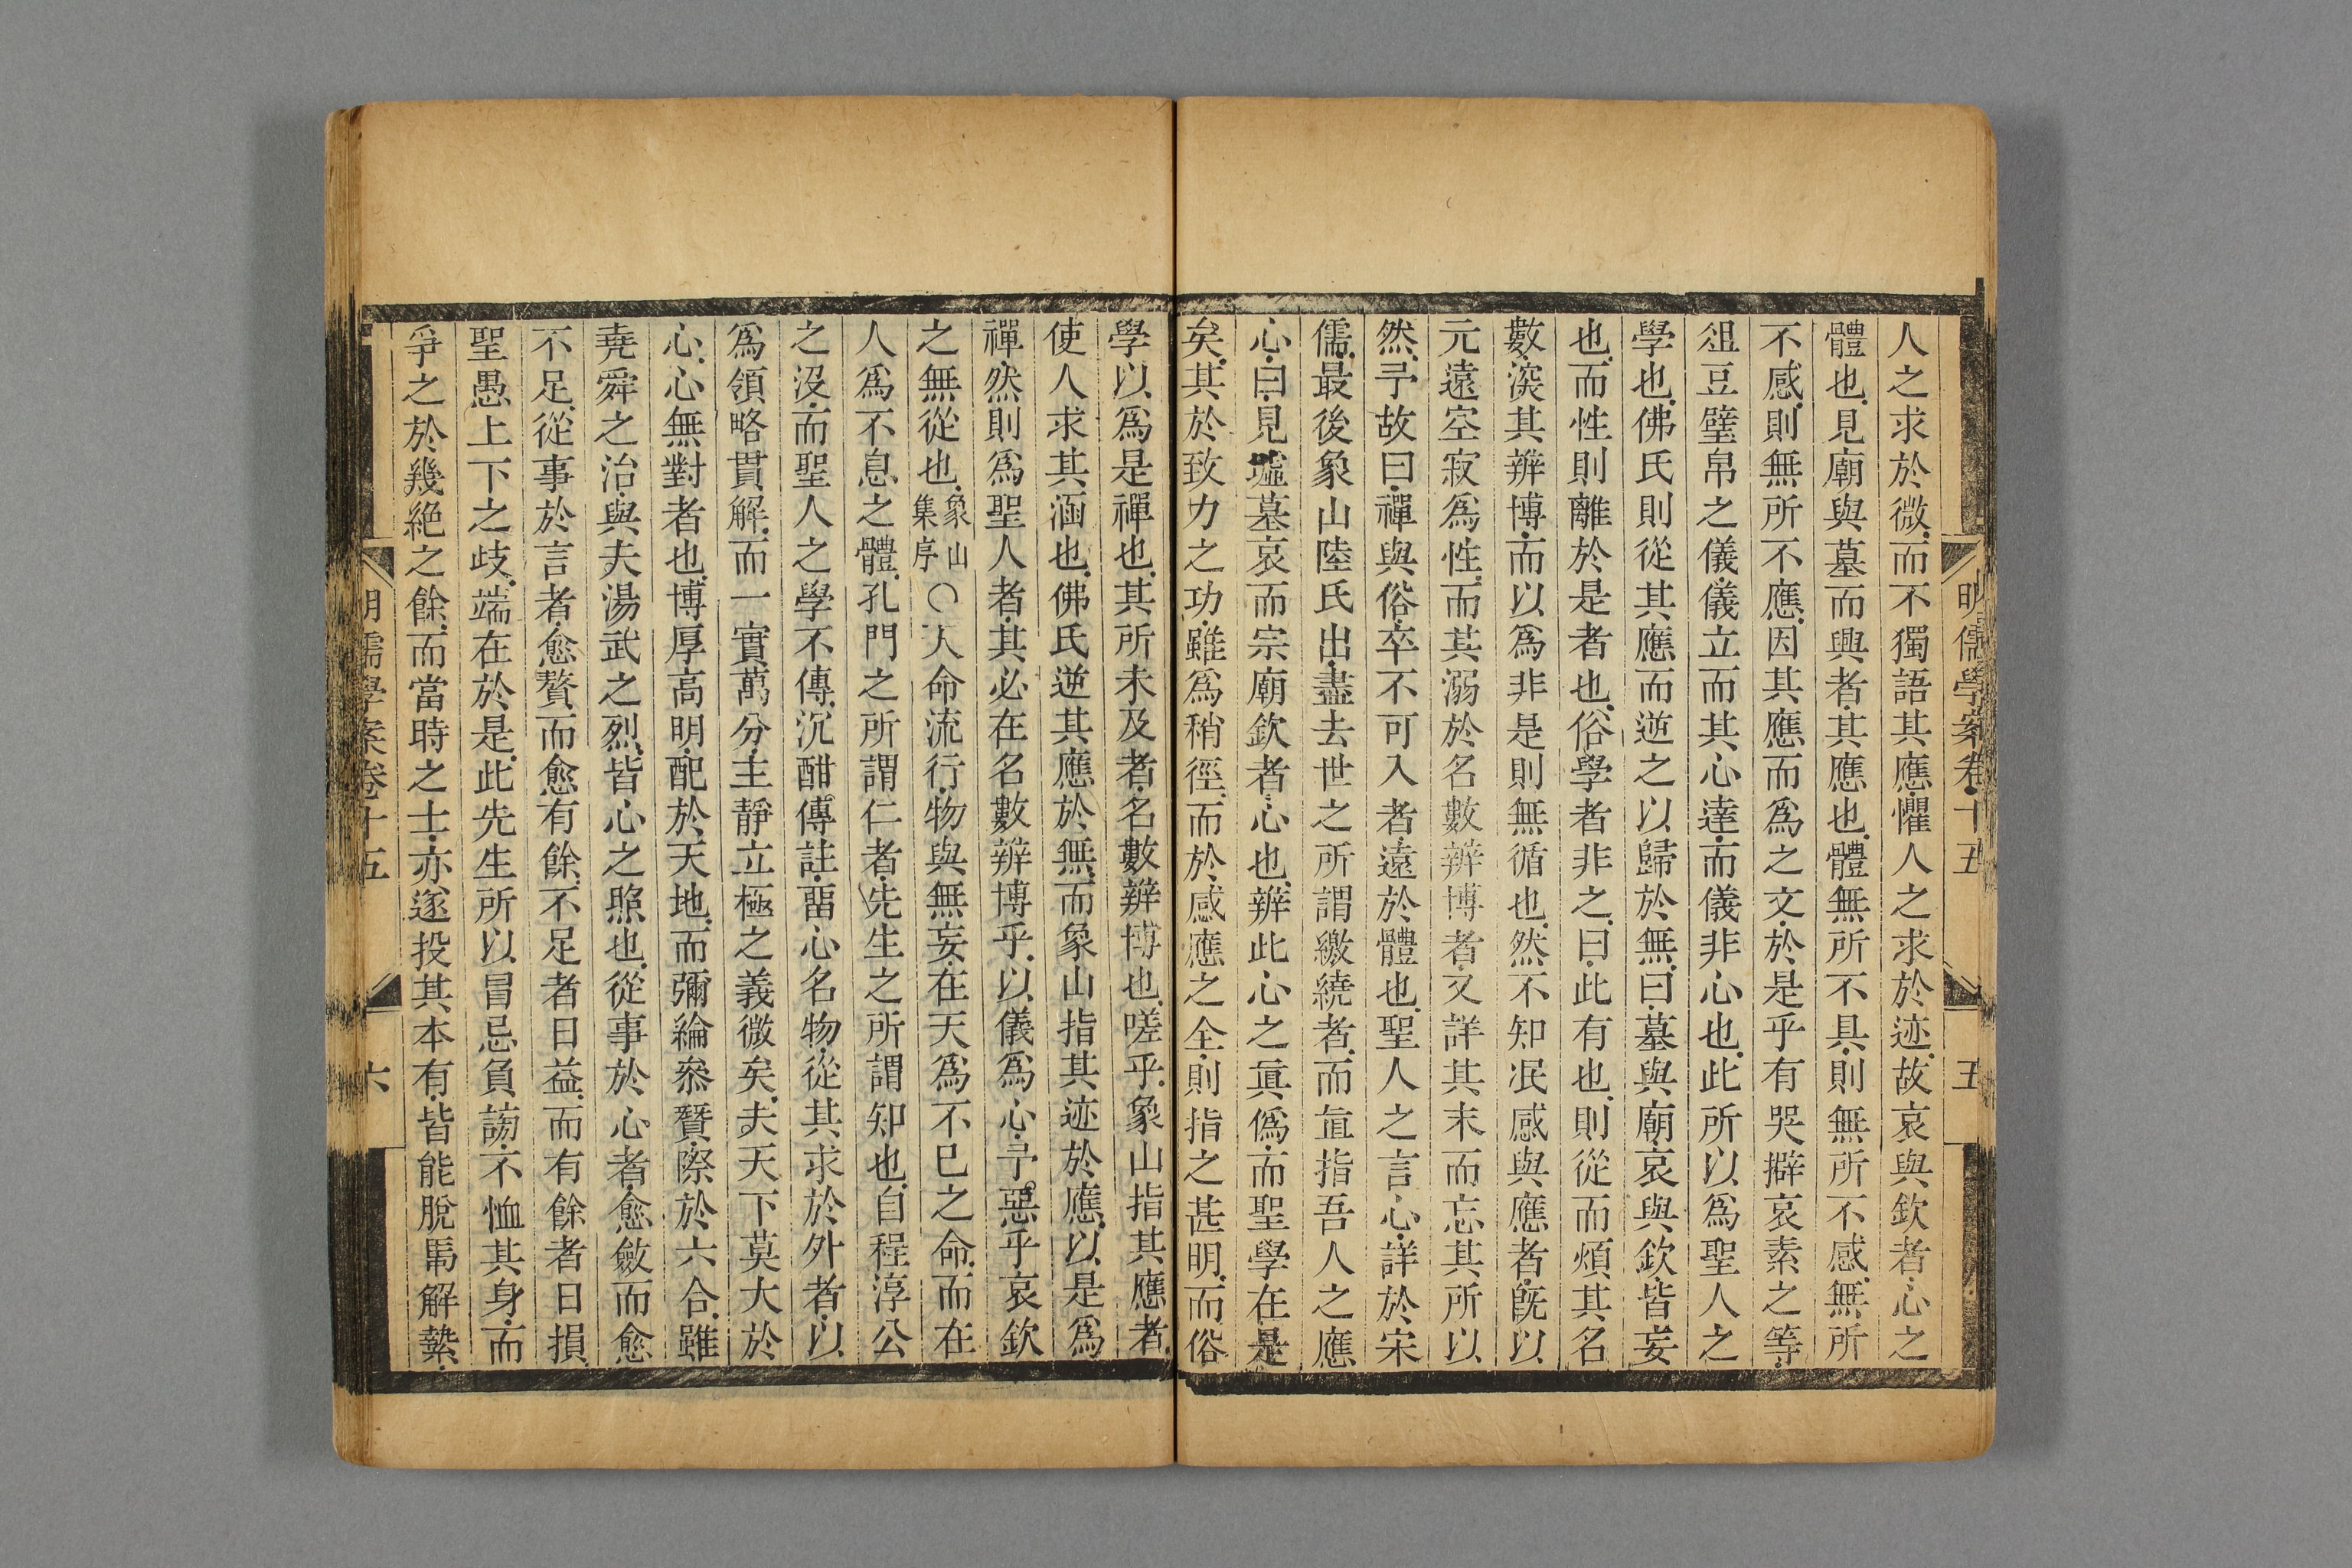 明儒學案卷十五 五
人之求於微而不獨語其應懼人之求於迹故哀與欽者心之
體也見廟與墓而興者其應也體無所不具則無所不感無所
不感則無所不應因其應而爲之文於是乎有哭擗哀素之等
俎豆璧帛之儀儀立而其心達而儀非心也此所以爲聖人之
學也佛氏則從其應而逆之以歸於無曰墓與廟哀與欽皆妄
也而性則離於是者也俗學者非之曰此有也則從而煩其名
數深其辨博而以爲非是則無循也然不知泯感與應者旣以
元遠空寂爲性而其溺於名數辨博者又詳其末而忘其所以
然予故曰禪與俗卒不可入者遠於體也聖人之言心詳於宋
儒最後象山陸氏出盡去世之所謂繳繞者而直指吾人之應
心曰見墟墓哀而宗廟欽者心也辨此心之眞僞而聖學在是
矣其於致力之功雖爲稍徑而於感應之全則指之甚明而俗
學以爲是禪也其所未及者名數辨博也嗟乎象山指其應者
使人求其涵也佛氏逆其應於無而象山指其迹於應以是爲
禪然則爲聖人者其必在名數辨博乎以儀爲心予惡乎哀欽
之無從也象山集序○天命流行物與無妄在天爲不已之命而在
人爲不息之體孔門之所謂仁者先生之所謂知也自程淳公
之沒而聖人之學不傳沉酣傳註畱心名物從其求於外者以
爲領略貫解而一實萬分主靜立極之義微矣夫天下莫大於
心心無對者也博厚高明配於天地而彌綸叅贊際於六合雖
堯舜之治與夫湯武之烈皆心之照也從事於心者愈斂而愈
不足從事於言者愈贅而愈有餘不足者日益而有餘者日損
聖愚上下之歧端在於是此先生所以冒忌負謗不恤其身而
爭之於幾絕之餘而當時之士亦遂投其本有皆能脫馽解縶
明儒學案卷十五 六